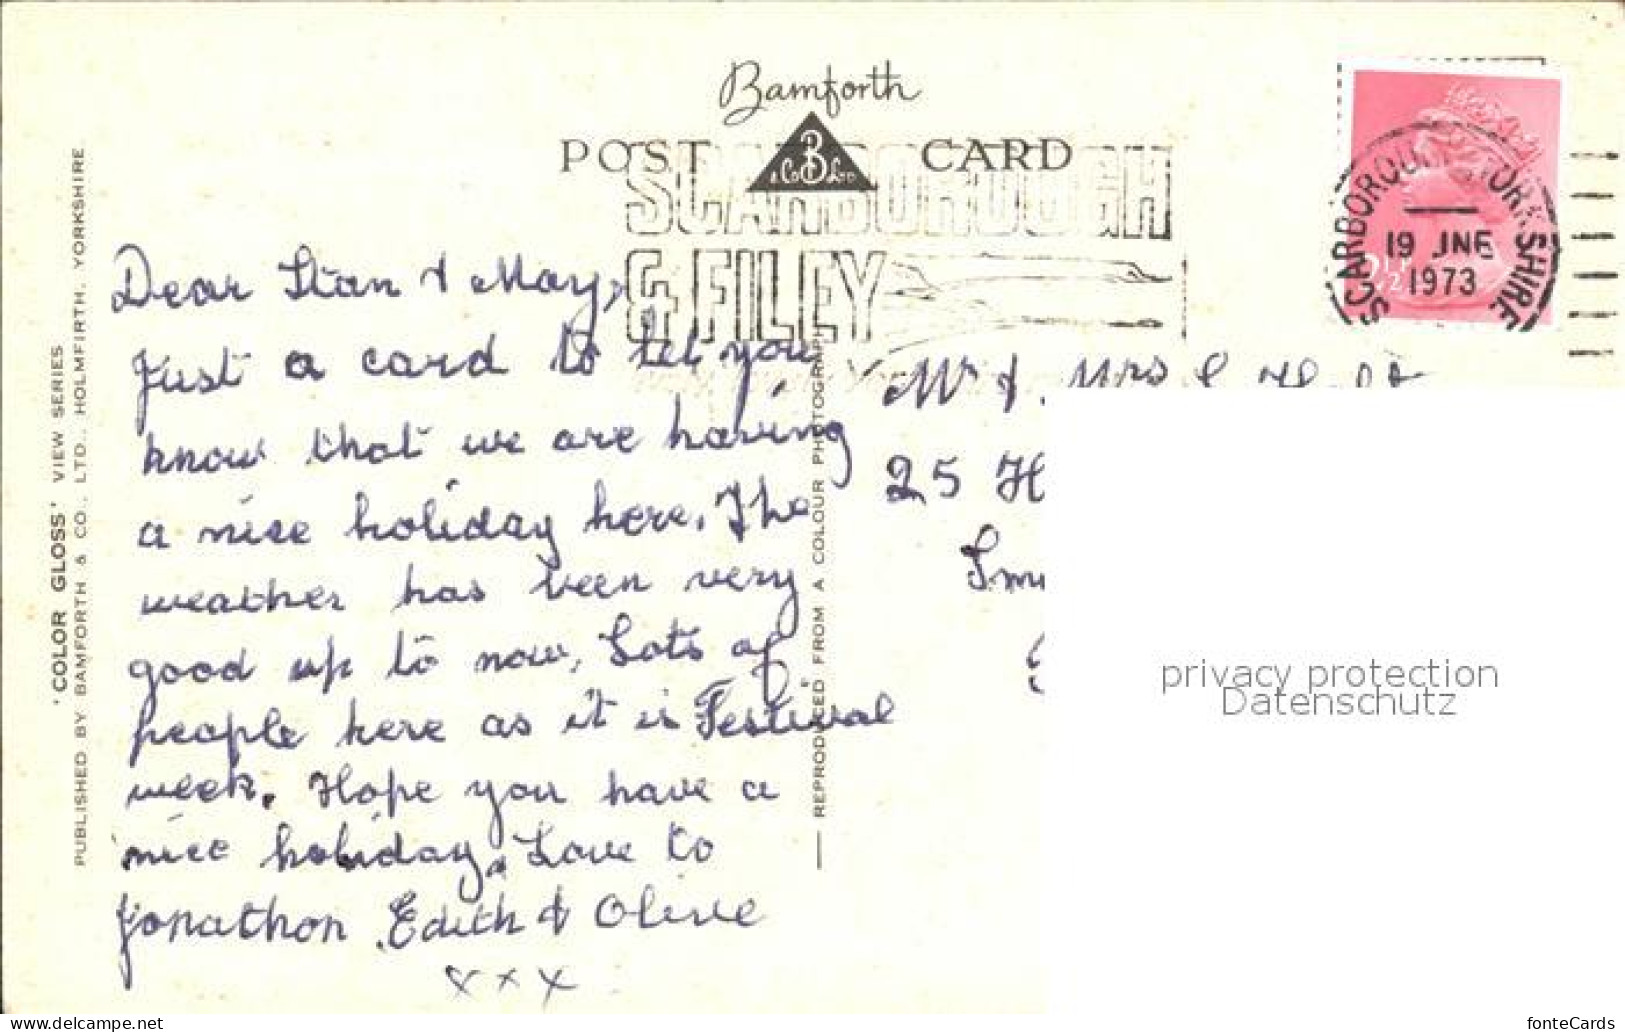 Bamforth
POST CARD
& Co B Ltd
SCARBOROUGH
& FILEY
SCARBOROUGH YORKSHIRE
19 JNE
1973
2½
Dear Stan & May,
Just a card to let you
know that we are having
a nice holiday here. The
weather has been very
good up to now. Lots of
people here as it is Festival
week. Hope you have a
nice holiday. Love to
Jonathon Edith & Olive
x x x
Mr & Mrs
25 H
Smi
'COLOR GLOSS' VIEW SERIES
PUBLISHED BY BAMFORTH & CO. LTD., HOLMFIRTH, YORKSHIRE
REPRODUCED FROM A COLOUR PHOTOGRAPH
privacy protection
Datenschutz
www.delcampe.net
fonteCards